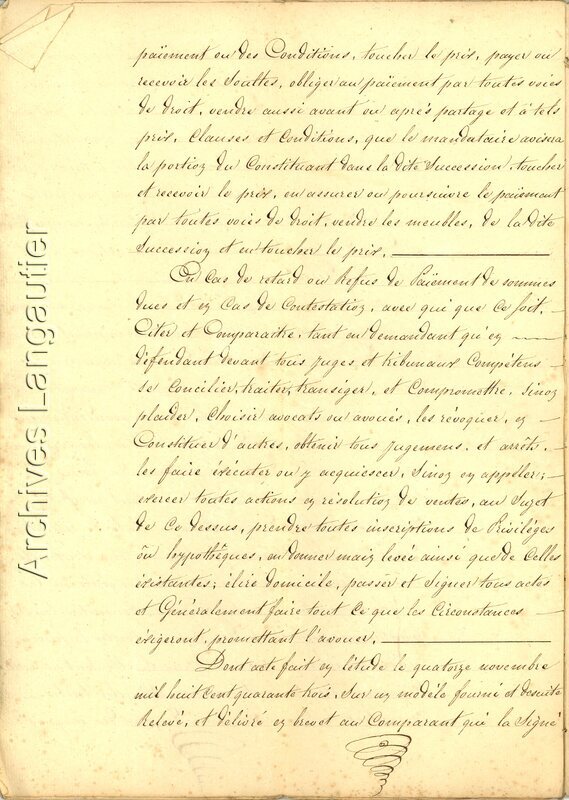 paiement ou des Conditions, toucher le prix, payer ou
recevoir les soultes, obliger au païement par toutes voies
de droit, vendre aussi avant ou après partage et à tels
prix, Clauses et Conditions, que le mandataire avisera
la portion du Constituant dans la dite Succession, toucher
et recevoir le prix, en assurer ou poursuivre le païement
par toutes voies de droit, vendre les meubles, de la dite
Succession et en toucher le prix.
En cas de retard ou Refus de Païement de sommes
dues et en Cas de Contestation, avec qui que ce soit,
Citer et Comparaitre, tant en demandant qu'en
défendant devant tous juges et tribunaux Compétens
se Concilier, traiter, transiger, et Compromettre, Sinon
plaider, Choisir avocats ou avoués, les révoquer, en
Constituer d'autres, obtenir tous jugemens, et arrêts,
les faire éxécuter ou y acquiescer, Sinon en appeler;
exercer toutes actions en résolution de ventes, au Sujet
de Ce dessus, prendre toutes inscriptions de Priviléges
ou hypothêques, en donner main levée ainsi que de Celles
éxistantes; élire domicile, passer et Signer tous actes
et Généralement faire tout Ce que les Circonstances
exigeront, promettant l'avouer.
Dont acte fait en l'étude le quatorze novembre
mil huit Cent quarante trois, Sur un modèle fourni et desuite
Relevé, et délivré en brevet au Comparant qui la Signé
Archives Langautier